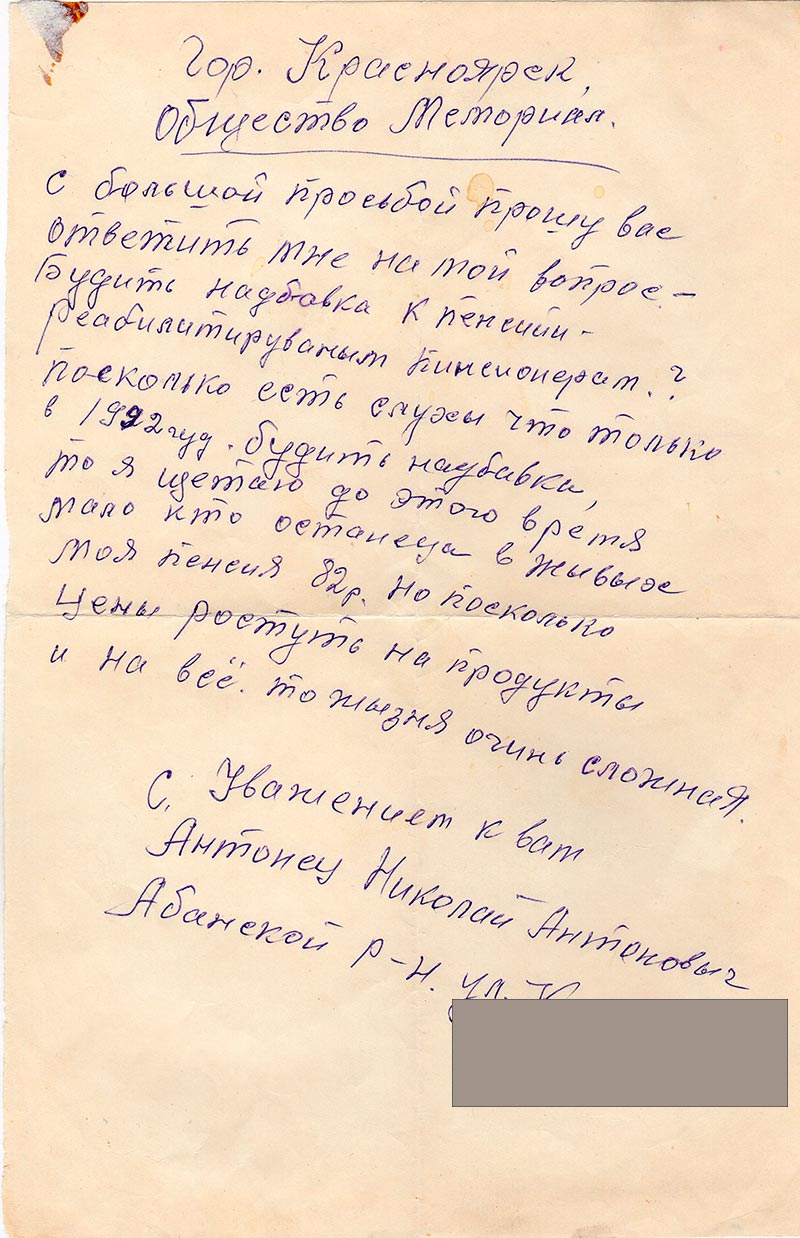 Гор. Красноярск,
Общество Мемориал.
С большой просьбой прошу вас
ответить мне на мой вопрос –
Будить надбавка к пенсийи –
Реабилитируваным пинсионерам.?
посколько есть слухы что только
в 1992 гуд. будить надбавка,
то я щетаю до этого время
мало кто останеца в жывых
Моя пенсия 82р. но посколько
Цены ростуть на продукты
и на всё. то жызня очинь сложная.
С. Уважением к вам
Антонец Николай Антоновыч
Абанской р-н. ул. К